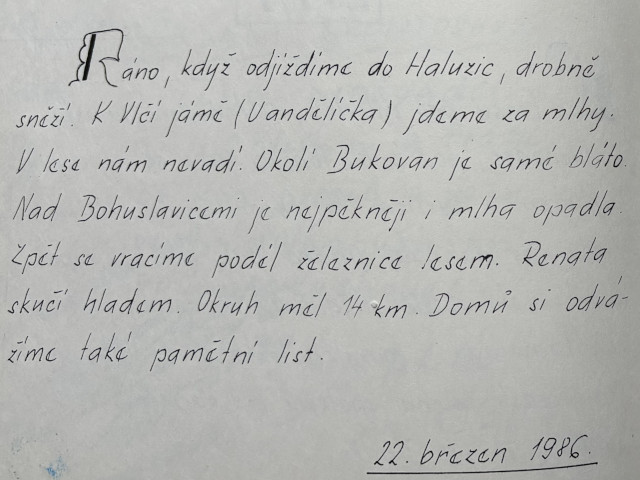 Ráno, když odjíždíme do Haluzic, drobně
sněží. K Vlčí jámě (U andělíčka) jdeme za mlhy.
V lese nám nevadí. Okolí Bukovan je samé bláto.
Nad Bohuslavicemi je nejpěkněji i mlha opadla.
Zpět se vracíme podél železnice lesem. Renata
skučí hladem. Okruh měl 14 km. Domů si odvá-
žíme také pamětní list.
22. březen 1986.